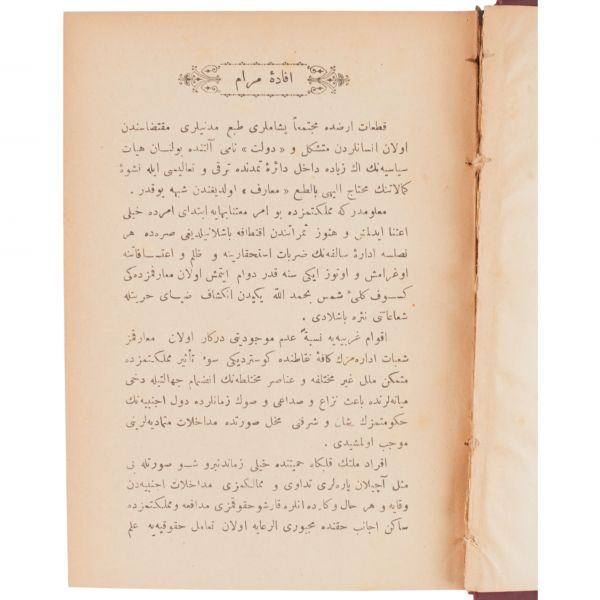 افادهٔ مرام
قطعات ارضده مجتمعاً یشاملری طبع مدنیلری مقتضاسندن
اولان انسانلردن متشکل و « دولت » نامی آلتنده بولنان هیات
سیاسیه‌نك اك زیاده داخل دائرهٔ تمدنده ترقی و تعالیسی ایله نشوهٔ
کمالاتنك محتاج الیهی بالطبع « معارف » اولدیغنده شبهه یوقدر .
معلومدرکه مملکتمزده بو امر معتنابهایه ابتدای امرده خیلی
اعتنا ایدلمش و هنوز ثمراتندن اقتطافه باشلانیلدیغی صره‌ده هر
نصلسه ادارهٔ سالفه‌نك ضربات استحقارینه و ظلم و اعتسافاتنه
اوغرامش و اوتوز ایکی سنه قدر دوام ایتمش اولان معارفمزده‌کی
کسوف کلیٔ شمس بحمد الله یکیدن انکشاف ضیای حریتله
شعاعاتنی نثره باشلادی .
اقوام غربیه‌یه نسبةً عدم موجودیتی درکار اولان معارفمز
شعبات اداره‌مزك کافهٔ نقاطنده کوستردیکی سوء تأثیر مملکتمزده
متمکن ملل غیر مختلفه و عناصر مختلطه‌نك انضمام جهالتیله دخی
میانه‌لرنده باعث نزاع و صداعی و صوك زمانلرده دول اجنبیه‌نك
حکومتمزك شان و شرفنی مخل صورتده مداخلات متمادیه‌لرینی
موجب اولمشیدی .
افراد ملتك قلبکاه حمیتنده خیلی زماندنبرو شو صورتله بی
مثل آچیلان یاره‌لری تداوی و ممالکمزی مداخلات اجنبیه‌دن
وقایه و هر حال وکارده انلره قارشو حقوقمزی مدافعه و مملکتمزده
ساکن اجانب حقنده مجبوری الرعایه اولان تعامل حقوقیه‌یه علم